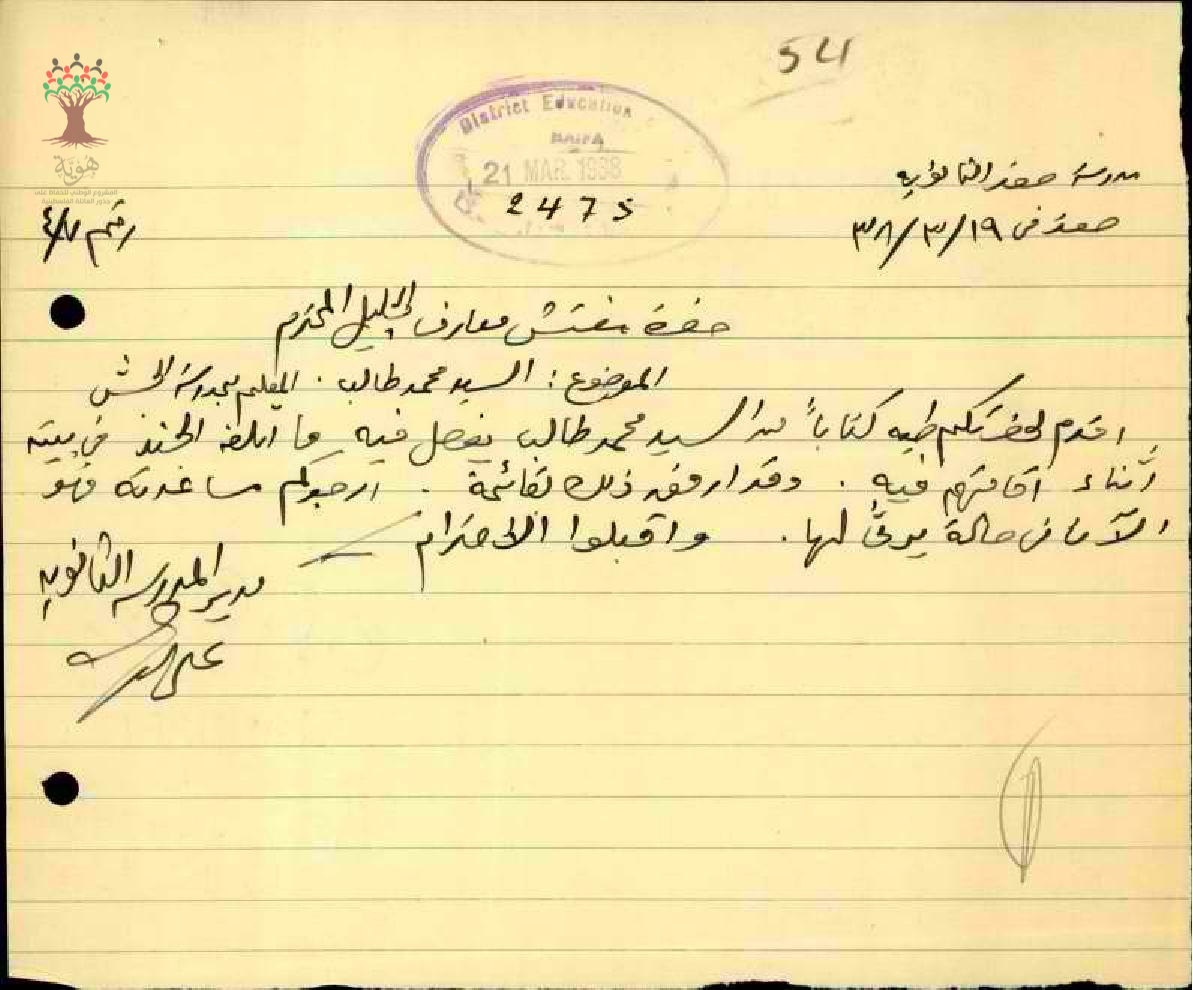 54
District Education
HAIFA
21 MAR. 1938
2475
مدرسة صفد الثانوية
صفد في ١٩/٣/٣٨
رقم ٤/٧
هوية
المشروع الوطني للحفاظ على
جذور العائلة الفلسطينية
حضرة مفتش معارف الجليل المحترم
الموضوع : السيد محمد طالب . المعلم بمدرسة الجش
اقدم لحضرتكم طيه كتاباً من السيد محمد طالب يفصل فيه ما اتلفه الجند في بيته
أثناء اقامتهم فيه . وقد ارفق ذلك بقائمة . ارجوكم مساعدته فهو
الآن في حالة يرثى لها . واقبلوا الاحترام
مدير المدرسة الثانوية